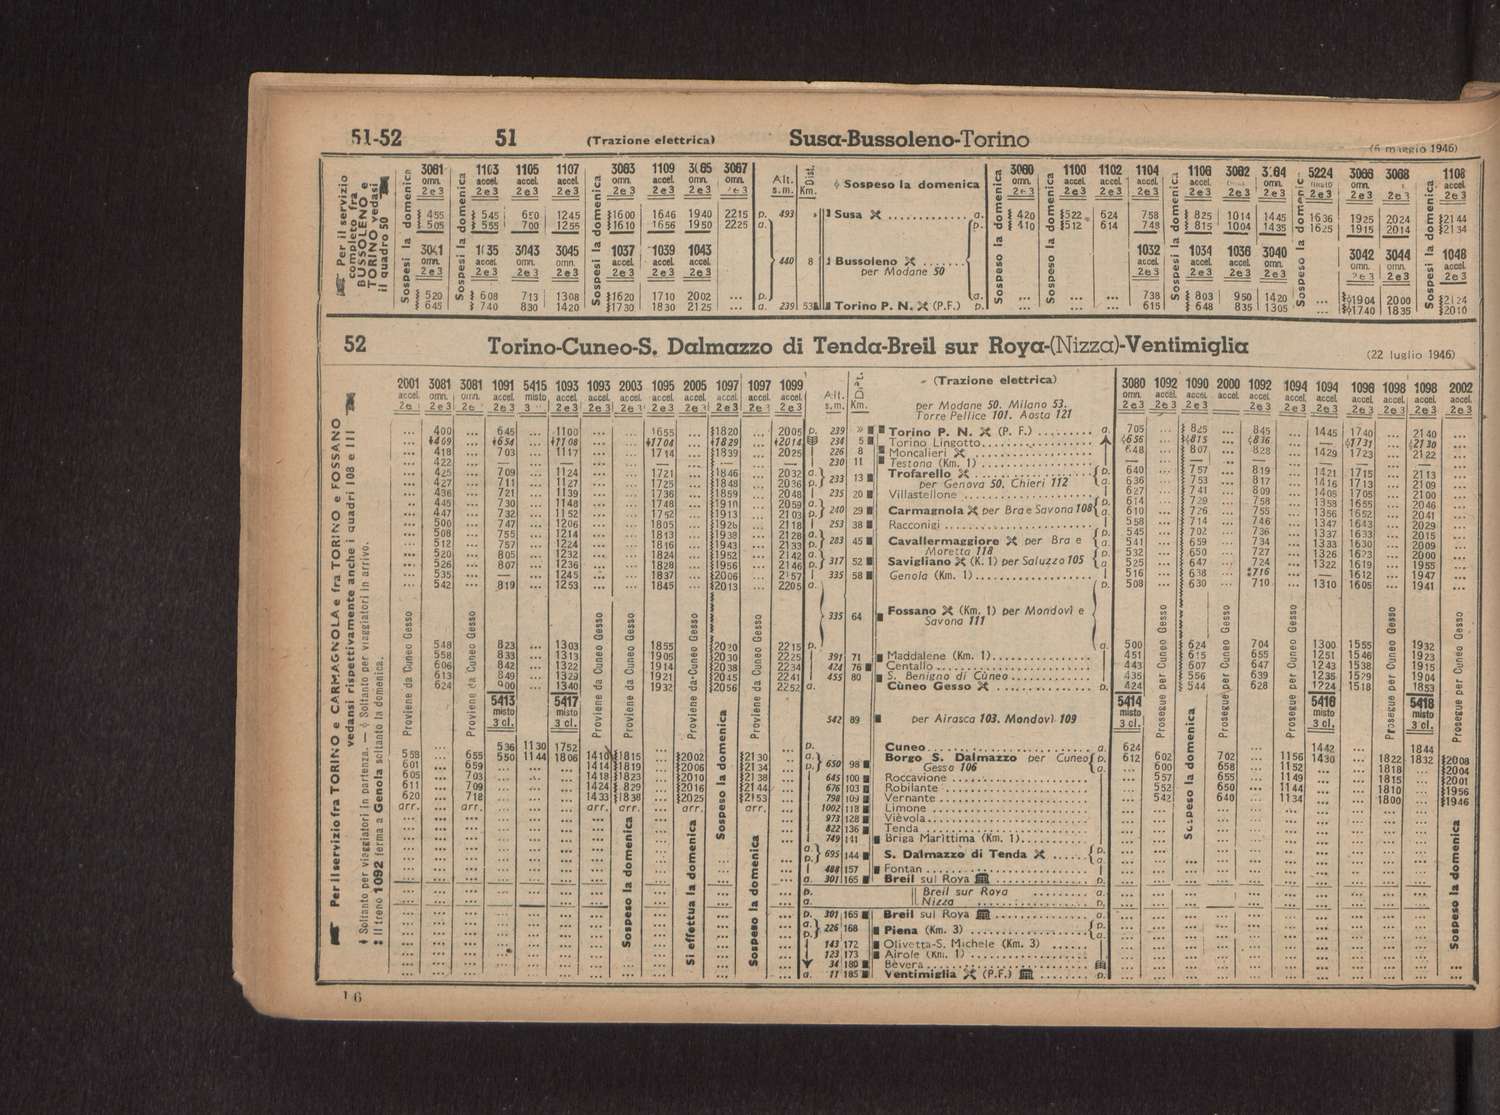 51-52 51 (Trazione elettrica) Susa-Bussoleno-Torino (6 maggio 1946)
Per il servizio
completo fra
BUSSOLENO e
TORINO vedasi
il quadro 50
Sospesi la domenica
3081 1103 1105 1107 3083 1109 3085 3087
omn. accel. accel. accel. omn. accel. omn. omn.
2e3 2e3 2e3 2e3 2e3 2e3 2e3
455 545 650 1245 1600 1646 1940 2215 p. 493 » Susa a. 420 522 624 758 825 1014 1445 1636 1925 2024 2144
505 555 700 1255 1610 1656 1950 2225 a. 410 512 614 748 815 1004 1435 1625 1915 2014 2134
Alt. s.m. Dist. Km. Sospeso la domenica
3080 1100 1102 1104 1106 3082 5224 3066 3068 1108
3041 3043 3045 1037 1039 1043
omn. accel. accel. accel. accel. accel.
2e3 2e3 2e3 2e3 2e3 2e3
440 8 Bussoleno
per Modane 50
1032 1034 1036 3040 3042 3044 1048
520 608 713 1308 1620 1710 2002 ... p. ... ... ... 738 803 950 1420 ... 1904 2000 2124
645 740 830 1420 1730 1830 2125 ... a. 239 53 Torino P. N. (P.F.) p. 615 648 835 1305 1740 1835 2010
52 Torino-Cuneo-S. Dalmazzo di Tenda-Breil sur Roya-(Nizza)-Ventimiglia (22 luglio 1946)
Per il servizio fra TORINO e CARMAGNOLA e fra TORINO e FOSSANO
vedansi rispettivamente anche i quadri 108 e 111
Soltanto per viaggiatori in partenza. — Soltanto per viaggiatori in arrivo.
Il treno 1092 ferma a Genola soltanto la domenica.
2001 3081 3081 1091 5415 1093 1093 2003 1095 2005 1097 1097 1099 (Trazione elettrica) 3080 1092 1090 2000 1092 1094 1094 1096 1098 1098 2002
accel. omn. omn. accel. misto accel. accel. accel. accel. accel. accel. accel. accel. Alt. s.m. Km. per Modane 50. Milano 53.
Torre Pellice 101. Aosta 121
... 400 ... 645 ... 1100 ... ... 1655 ... 1820 ... 2005 p. 239 » Torino P. N. (P. F.) a. 705 ... 825 ... 845 ... 1445 1740 ... 2140 ...
... 409 ... 654 ... 1108 ... ... 1704 ... 1829 ... 2014 234 5 Torino Lingotto 656 ... 815 ... 836 ... — 1731 ... 2130 ...
... 418 ... 703 ... 1117 ... ... 1714 ... 1839 ... 2025 226 8 Moncalieri 648 ... 807 ... 828 ... 1429 1723 ... 2122 ...
... 422 ... — ... — ... ... — ... — ... — 230 11 Testona (Km. 1)
... 425 ... 709 ... 1124 ... ... 1721 ... 1846 ... 2032 a. 233 13 Trofarello p. 640 ... 757 ... 819 ... 1421 1715 ... 2113 ...
... 427 ... 711 ... 1127 ... ... 1725 ... 1848 ... 2036 p. per Genova 50. Chieri 112 a. 636 ... 753 ... 817 ... 1416 1713 ... 2109 ...
... 436 ... 721 ... 1139 ... ... 1736 ... 1859 ... 2048 235 20 Villastellone 627 ... 741 ... 809 ... 1405 1705 ... 2100 ...
... 445 ... 730 ... 1148 ... ... 1748 ... 1910 ... 2059 a. 240 29 Carmagnola per Bra e Savona 108 p. 614 ... 729 ... 758 ... 1358 1655 ... 2046 ...
... 447 ... 732 ... 1152 ... ... 1752 ... 1913 ... 2103 p. a. 610 ... 726 ... 755 ... 1356 1652 ... 2041 ...
... 500 ... 747 ... 1206 ... ... 1805 ... 1926 ... 2118 253 38 Racconigi 558 ... 714 ... 746 ... 1347 1643 ... 2029 ...
... 508 ... 755 ... 1214 ... ... 1813 ... 1938 ... 2128 a. 283 45 Cavallermaggiore per Bra e p. 545 ... 702 ... 736 ... 1337 1633 ... 2015 ...
... 512 ... 757 ... 1224 ... ... 1816 ... 1943 ... 2133 p. Moretta 118 a. 541 ... 659 ... 734 ... 1333 1630 ... 2009 ...
... 520 ... 805 ... 1232 ... ... 1824 ... 1952 ... 2142 a. 317 52 Savigliano (K. 1) per Saluzzo 105 p. 532 ... 650 ... 727 ... 1326 1623 ... 2000 ...
... 526 ... 807 ... 1236 ... ... 1828 ... 1956 ... 2146 p. a. 525 ... 647 ... 724 ... 1322 1619 ... 1955 ...
... 535 ... — ... 1245 ... ... 1837 ... 2006 ... 2157 335 58 Genola (Km. 1) 516 ... 638 ... 716 ... — 1612 ... 1947 ...
... 542 ... 819 ... 1253 ... ... 1845 ... 2013 ... 2205 a. 508 ... 630 ... 710 ... 1310 1605 ... 1941 ...
335 64 Fossano (Km. 1) per Mondovì e
Savona 111
Proviene da Cuneo Gesso
Prosegue per Cuneo Gesso
548 823 1303 1855 2020 2215 p. a. 500 624 704 1300 1555 1932
558 833 1313 1905 2030 2225 391 71 Maddalene (Km. 1) 451 615 655 1251 1546 1923
606 842 1322 1914 2038 2234 424 76 Centallo 443 607 647 1243 1538 1915
613 849 1329 1921 2045 2241 455 80 S. Benigno di Cùneo 435 556 639 1235 1529 1904
624 900 1340 1932 2056 2252 a. Cùneo Gesso p. 424 544 628 1224 1518 1853
5413 5417 5414 5416 5418
misto misto 542 89 per Airasca 103. Mondovì 109 misto misto misto
3 cl. 3 cl. 3 cl. 3 cl. 3 cl.
536 1130 1752 p. Cuneo a. 624 1442 1844
558 655 550 1144 1806 1410 1815 2002 2130 a. 650 98 Borgo S. Dalmazzo per Cuneo p. 612 602 702 1156 1430 1822 1832 2008
601 659 1414 1819 2006 2134 p. Gesso 106 a. 600 658 1152 1818 2004
605 703 1418 1823 2010 2138 645 100 Roccavione 557 655 1149 1815 2001
611 709 1424 829 2016 2144 676 103 Robilante 552 650 1144 1810 1956
620 718 1433 1838 2025 2153 798 109 Vernante 542 640 1134 1800 1946
arr. arr. arr. arr. arr. arr. 1002 118 Limone
973 128 Vièvola
822 136 Tenda
749 141 Briga Marìttima (Km. 1)
a. p. 695 144 S. Dalmazzo di Tenda p. a.
488 157 Fontan
a. 301 165 Breil sul Roya p.
p. Breil sur Roya a.
a. Nizza p.
p. 301 165 Breil sul Roya a.
a. p. 226 168 Piena (Km. 3) p. a.
143 172 Olivetta-S. Michele (Km. 3)
123 173 Airole (Km. 1)
34 180 Bèvera
a. 11 185 Ventimiglia (P.F.) p.
Sospeso la domenica
Si effettua la domenica
Sospeso la domenica
Sospeso la domenica